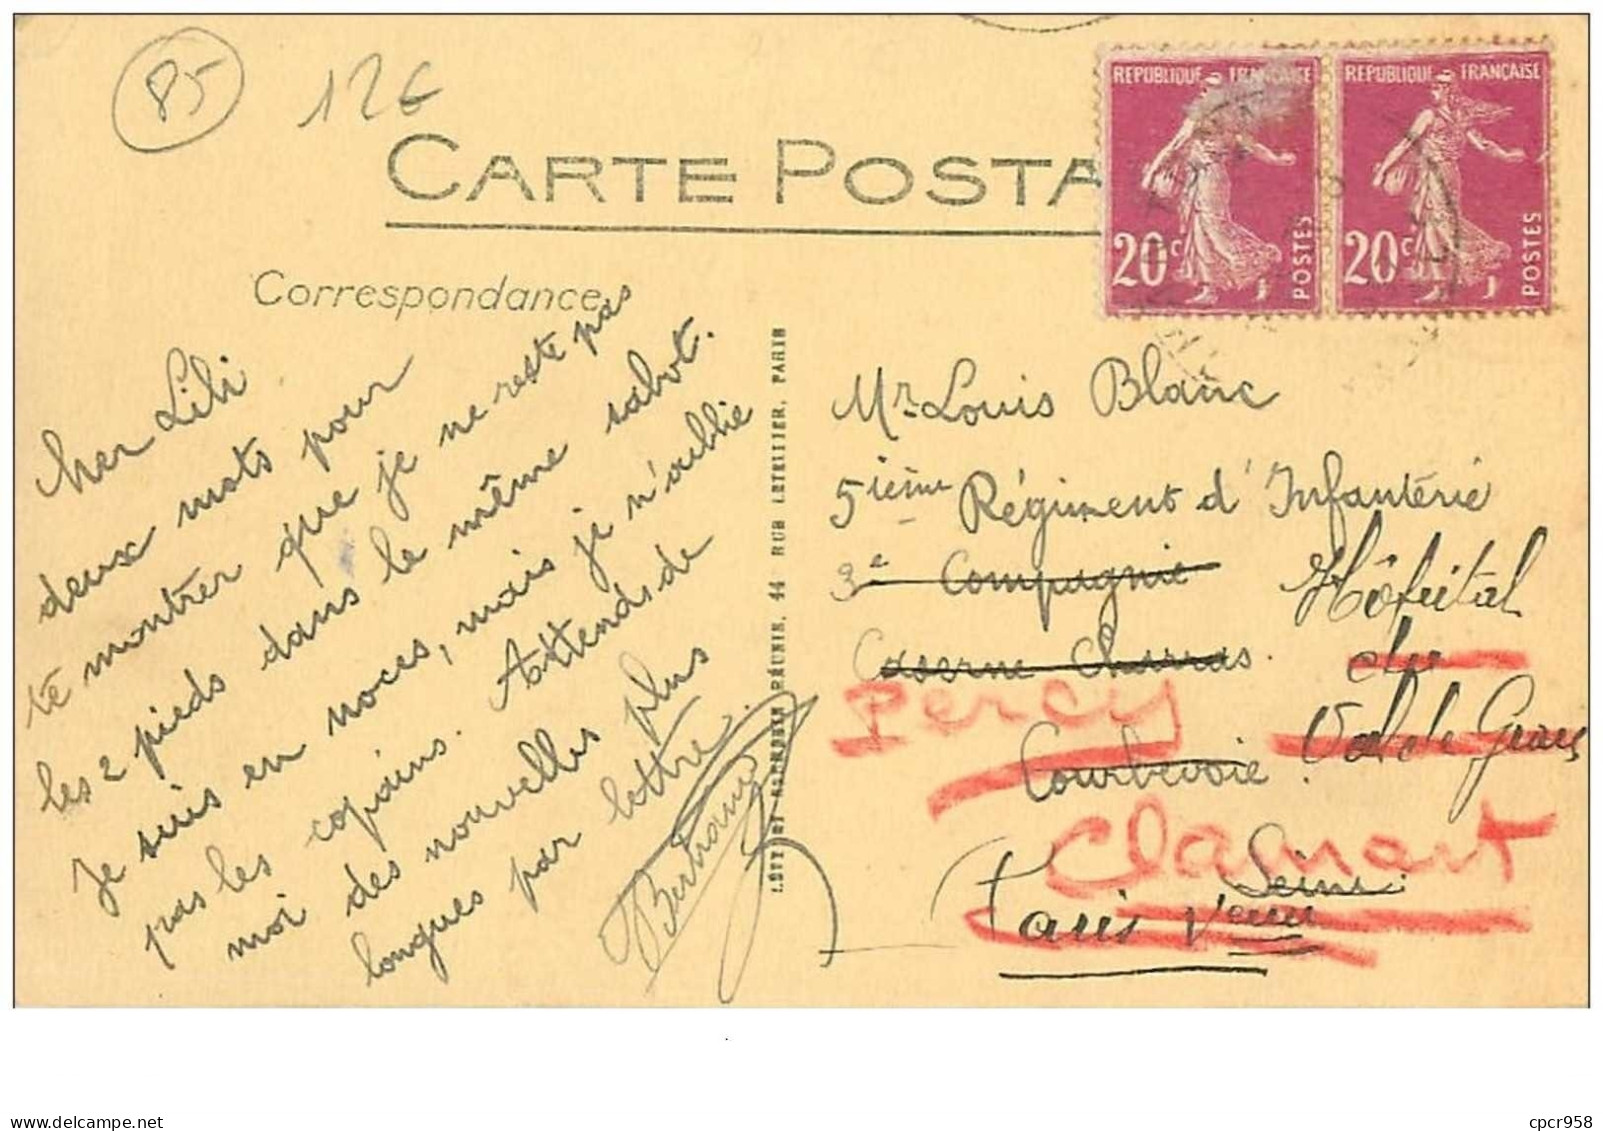 85
12€
CARTE POSTA
REPUBLIQUE FRANÇAISE
20c POSTES
REPUBLIQUE FRANÇAISE
20c POSTES
Correspondance
cher Lili
deux mots pour
te montrer que je ne reste pas
les 2 pieds dans le même sabot.
Je suis en noces, mais je n'oublie
pas les copains. Attends de
moi des nouvelles plus
longues par lettre.
Bertrand
RÉUNIS, 44 RUE LETELLIER, PARIS
Mr Louis Blanc
5ième Régiment d'Infanterie
3e Compagnie
Caserne Charras.
Courbevoie.
Seine.
Hôpital
du
Val de Grace
Paris Veme
Percy
Clamart
www.delcampe.net
cpcr958